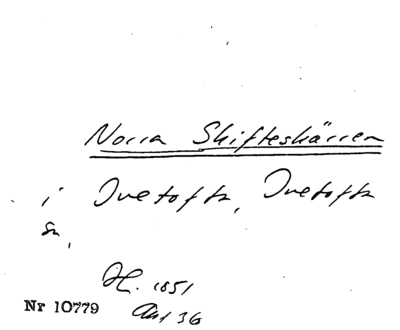 Norra Skifteskärren
i Tvetofta, Tvetofta
sn,
H. 1851
Nr 10779 Akt 36